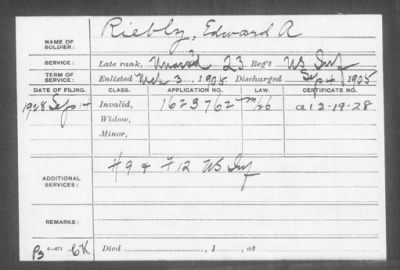 NAME OF SOLDIER: Riebly, Edward A
SERVICE: Late rank, 23 Reg't US Inf
TERM OF SERVICE: Enlisted Mch 3, 1905 Discharged Sep 4, 1905
DATE OF FILING. CLASS. APPLICATION NO. LAW. CERTIFICATE NO.
1928 Sep 14 Invalid, 1623762 a 12-19-28
Widow,
Minor,
ADDITIONAL SERVICES: H 9 & F 12 US Inf
REMARKS:
Died , 1 , at